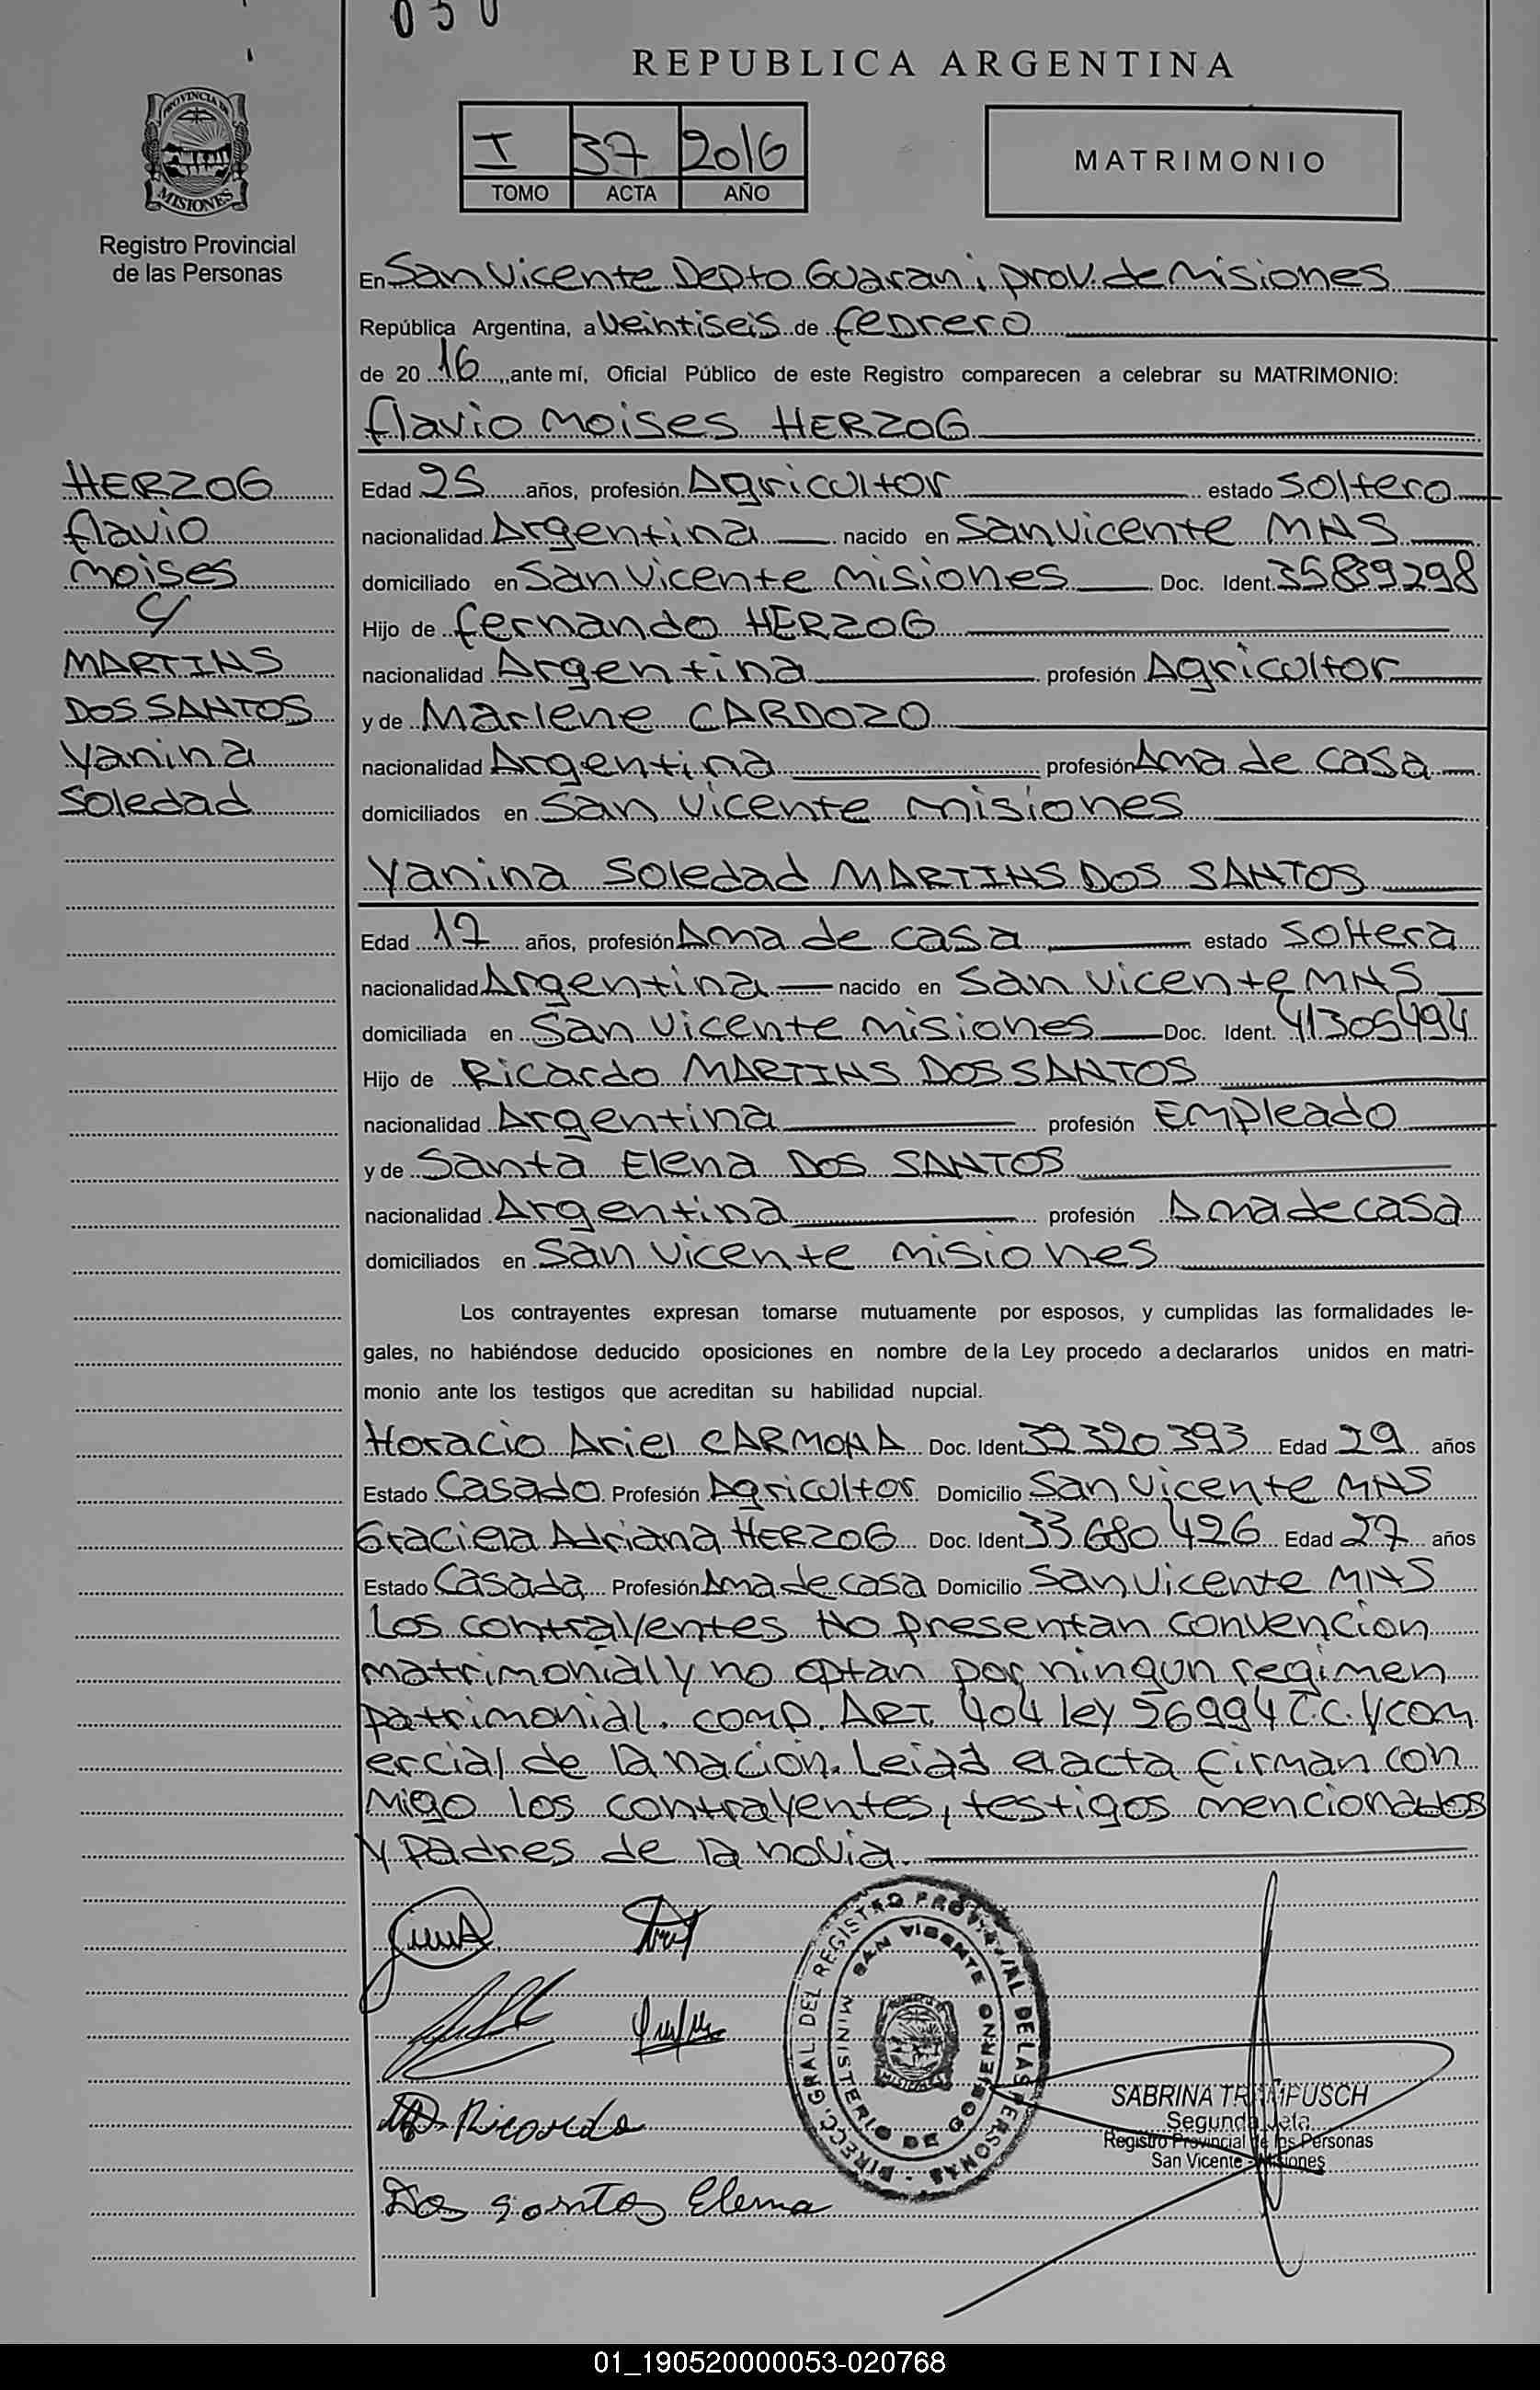 030
REPUBLICA ARGENTINA
PROVINCIA DE
MISIONES
Registro Provincial
de las Personas
I 37 2016
TOMO ACTA AÑO
MATRIMONIO
En San Vicente Depto Guarani prov. de Misiones
República Argentina, a Veintiseis de febrero
de 20 16 ,, ante mí, Oficial Público de este Registro comparecen a celebrar su MATRIMONIO:
flavio moises HERZOG
HERZOG
flavio
moises
y
MARTINS
DOS SANTOS
Yanina
Soledad
Edad 25 años, profesión Agricultor estado Soltero
nacionalidad Argentina nacido en San Vicente MNS
domiciliado en San Vicente misiones Doc. Ident. 35839298
Hijo de fernando HERZOG
nacionalidad Argentina profesión Agricultor
y de Marlene CARDOZO
nacionalidad Argentina profesión Ama de casa
domiciliados en San Vicente misiones
Yanina Soledad MARTINS DOS SANTOS
Edad 17 años, profesión Ama de casa estado Soltera
nacionalidad Argentina nacido en San Vicente MNS
domiciliada en San Vicente misiones Doc. Ident. 41305494
Hijo de Ricardo MARTINS DOS SANTOS
nacionalidad Argentina profesión Empleado
y de Santa Elena DOS SANTOS
nacionalidad Argentina profesión Ama de casa
domiciliados en San Vicente misiones
Los contrayentes expresan tomarse mutuamente por esposos, y cumplidas las formalidades le-
gales, no habiéndose deducido oposiciones en nombre de la Ley procedo a declararlos unidos en matri-
monio ante los testigos que acreditan su habilidad nupcial.
Horacio Ariel CARMONA Doc. Ident 32320393 Edad 29 años
Estado Casado Profesión Agricultor Domicilio San Vicente MNS
Graciela Adriana HERZOG Doc. Ident 33.680 426 Edad 27 años
Estado Casada Profesión Ama de casa Domicilio San Vicente MNS
Los contrayentes No presentan convencion
matrimonial y no optan por ningun regimen
patrimonial. comp. ART. 404 ley 26994 C.C. y com
ercial de la nacion. Leiad el acta firman con
migo los contrayentes, testigos mencionados
y padres de la novia.
DIRECC. GRAL. DEL REGISTRO PROVINCIAL DE LAS PERSONAS
SAN VICENTE
MINISTERIO DE GOBIERNO
MISIONES
Ricardo
Dos Santos Elena
SABRINA
Segunda Jefa
Registro Provincial de las Personas
San Vicente - Misiones
01_190520000053-020768